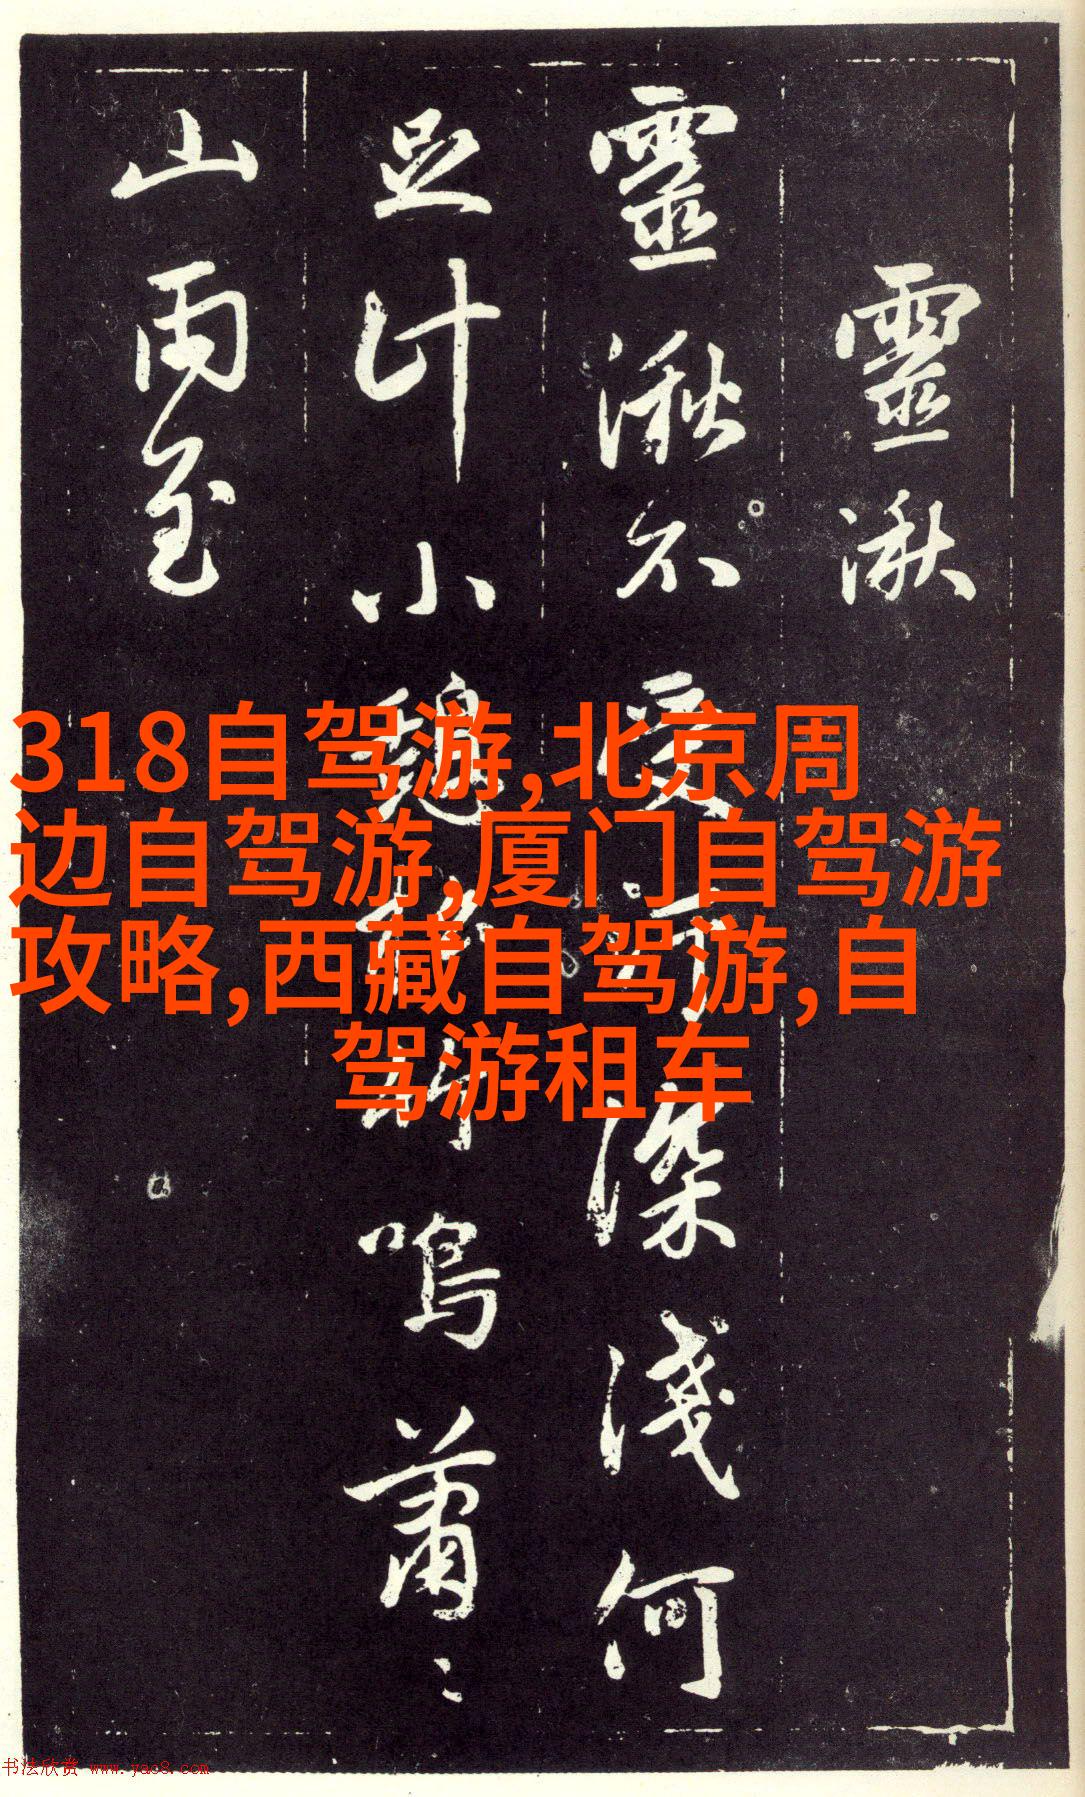 靈湫
靈湫不受深淺何
足計小鳴蕭〻
山雨至
318自驾游,北京周
边自驾游,厦门自驾游
攻略,西藏自驾游,自
驾游租车
书法欣赏 www.yac8.com